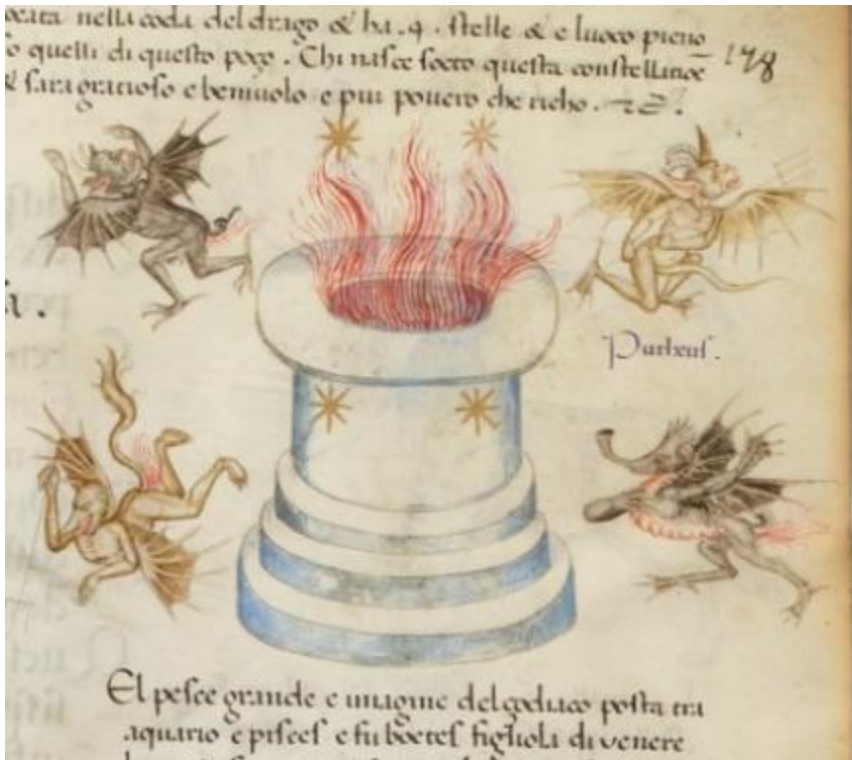 nella coda del drago & ha .4. stelle & e luoco pieno
quelli di questo pozo. Chi nasce socto questa constellatioe
178
& sara gratioso e beniuolo e piu pouero che richo.
a.
Puteus.
El pesce grande e imagine del zodiaco posta tra
aquario e pisces e fu boetes figliola di venere